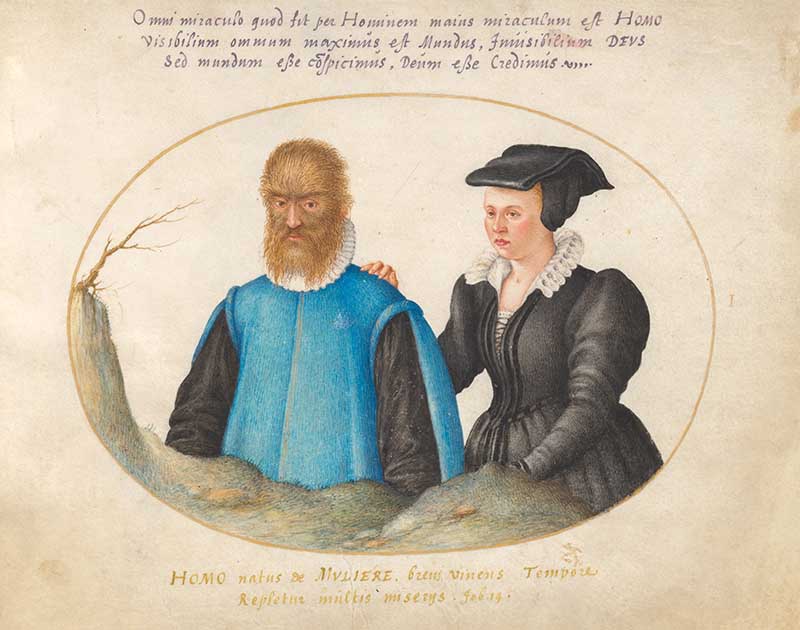 Omni miraculo quod fit per Hominem maius miraculum est HOMO
Visibilium omnium maximus est Mundus, Inuisibilium DEVS
Sed mundum eße cõspicimus, Deum eße Credimus
I
HOMO natus de MVLIERE. breui viuens Tempore
Repletur multis miserys. Job.14.